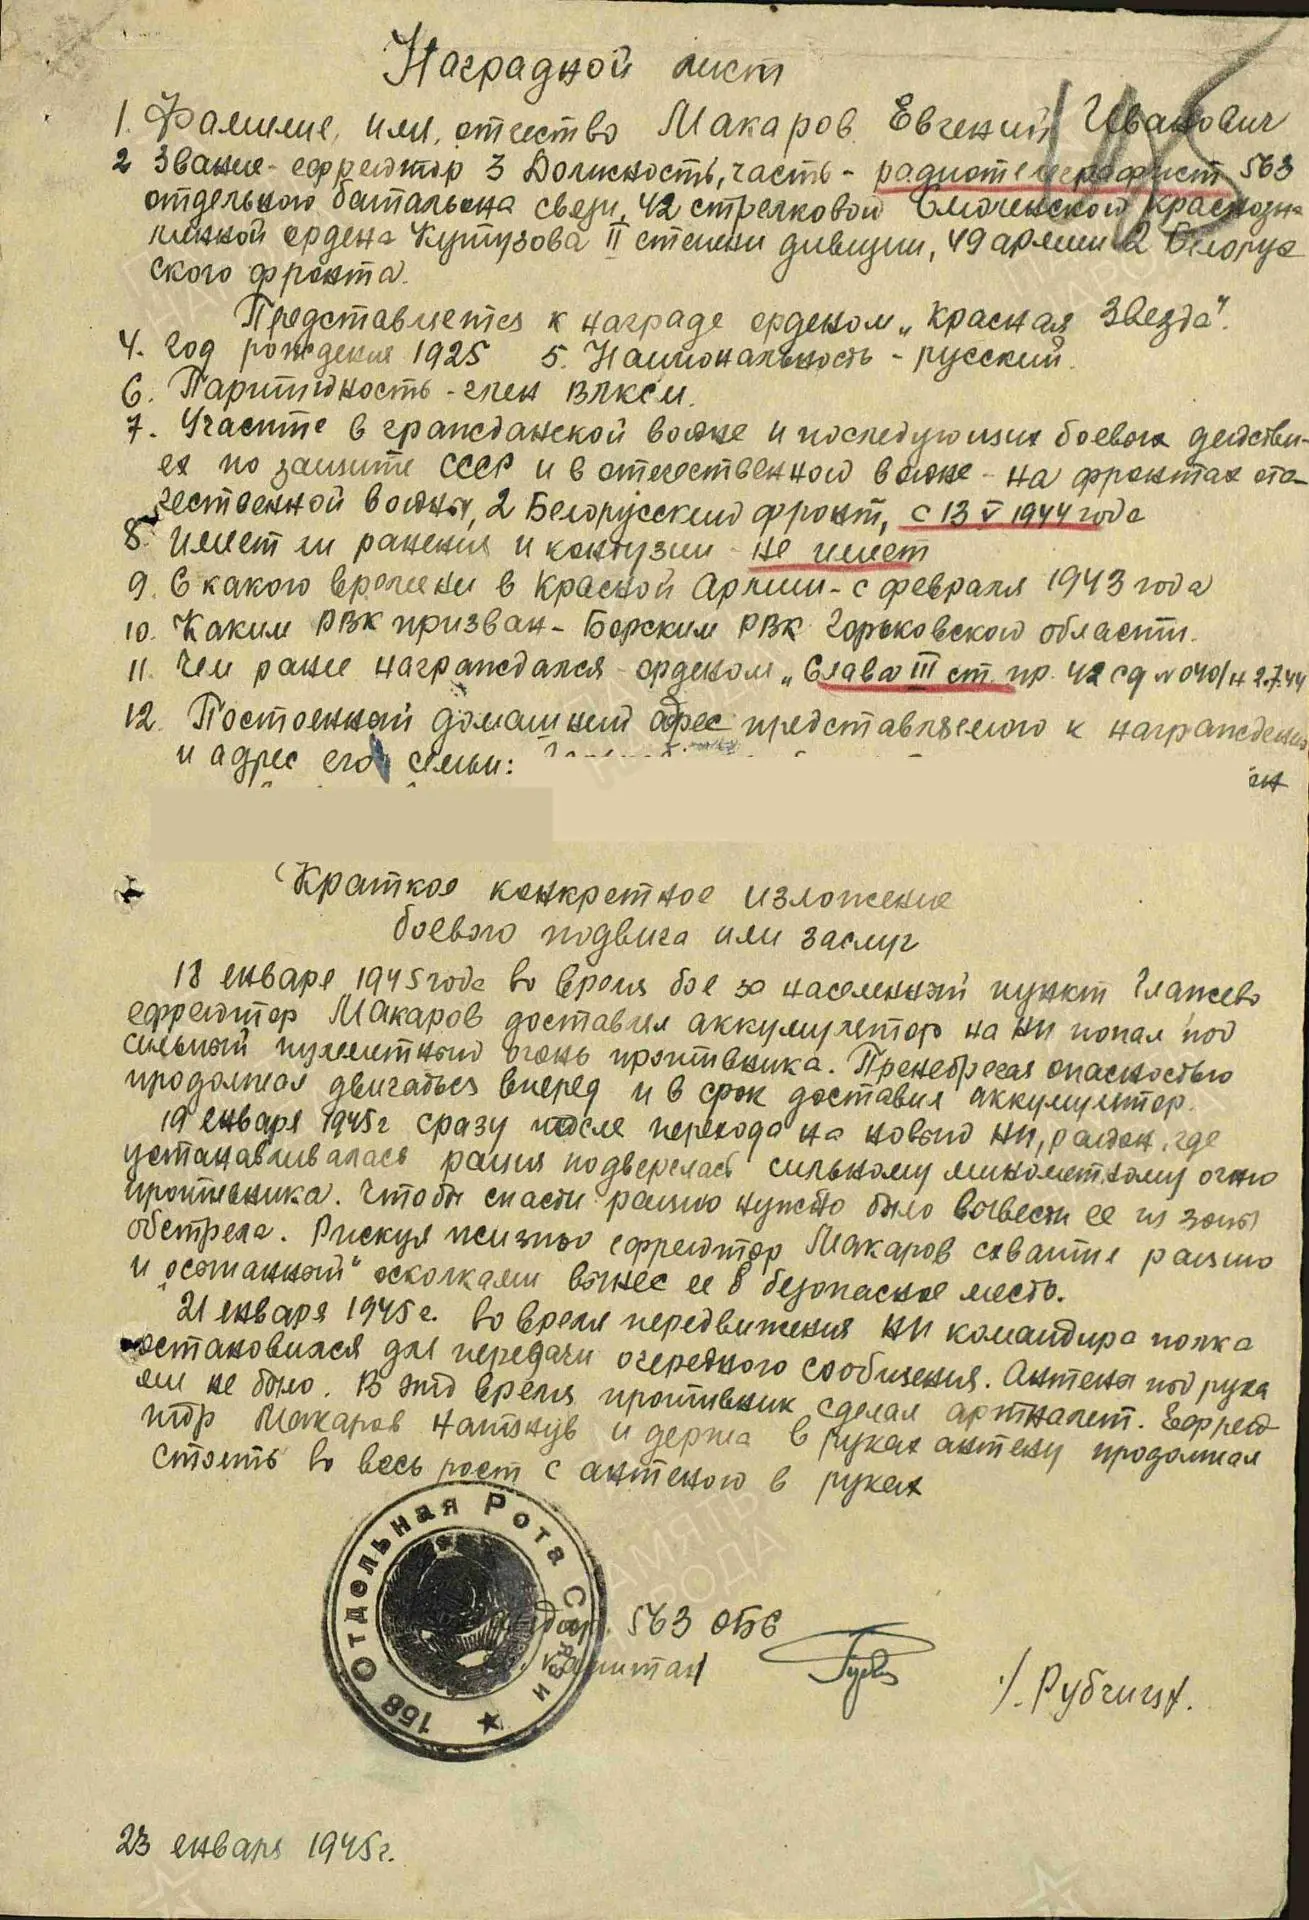 Наградной лист
1. Фамилие, имя, отчество Макаров Евгений Иванович
2 Звание - ефрейтор 3 Должность, часть - радиотелеграфист 563
отдельного батальона связи, 42 стрелковой Смоленской Краснозна-
менной ордена Кутузова II степени дивизии, 49 армии 2 Белорус
ского фронта.
Представляется к награде орденом „Красная Звезда".
4. Год рождения 1925 5. Национальность - русский.
6. Партийность - член ВЛКСМ.
7. Участие в гражданской войне и последующих боевых действи-
ях по защите СССР и в отечественной войне - на фронтах оте-
чественной войны, 2 Белорусский фронт, с 13 V 1944 года
8. Имеет ли ранения и контузии - не имеет
9. С какого времени в Красной Армии - с февраля 1943 года
10. Каким РВК призван - Борским РВК Горьковской области.
11. Чем ранее награждался - орденом „Слава III ст. пр. 42 сд № 040/н 2.7.44
12. Постоянный домашний адрес представляемого к награждению
и адрес его семьи:
Краткое конкретное изложение
боевого подвига или заслуг
18 января 1945 года во время боя за населенный пункт Глажево
ефрейтор Макаров доставляя аккумулятор на НП попал под
сильный пулеметный огонь противника. Пренебрегая опасностью
продолжал двигаться вперед и в срок доставил аккумулятор.
19 января 1945г сразу после перехода на новый НП, район, где
устанавливалась рация подвергся сильному минометному огню
противника. Чтобы спасти рацию нужно было вывести ее из зоны
обстрела. Рискуя жизнью ефрейтор Макаров схватил рацию
и осыпанный осколками вынес ее в безопасное место.
21 января 1945г. во время передвижения НП командира полка
остановился для передачи очередного сообщения. Антены под рука
ми не было. В это время противник сделал артналет. Ефрей
тор Макаров натянув и держа в руках антену продолжал
стоять во весь рост с антеной в руках
158 Отдельная Рота Связи
563 ОБС
капитан /. Рубчиц/.
23 января 1945г.